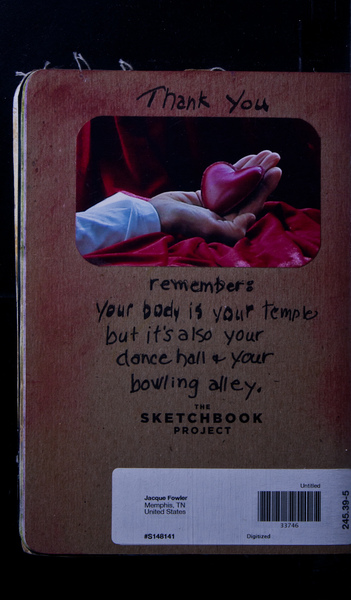 Thank You
remember:
Your body is your temple
but it's also your
dance hall & your
bowling alley.
THE
SKETCHBOOK
PROJECT
Untitled
Jacque Fowler
Memphis, TN
United States
33746
#S148141
Digitized
245.39-5